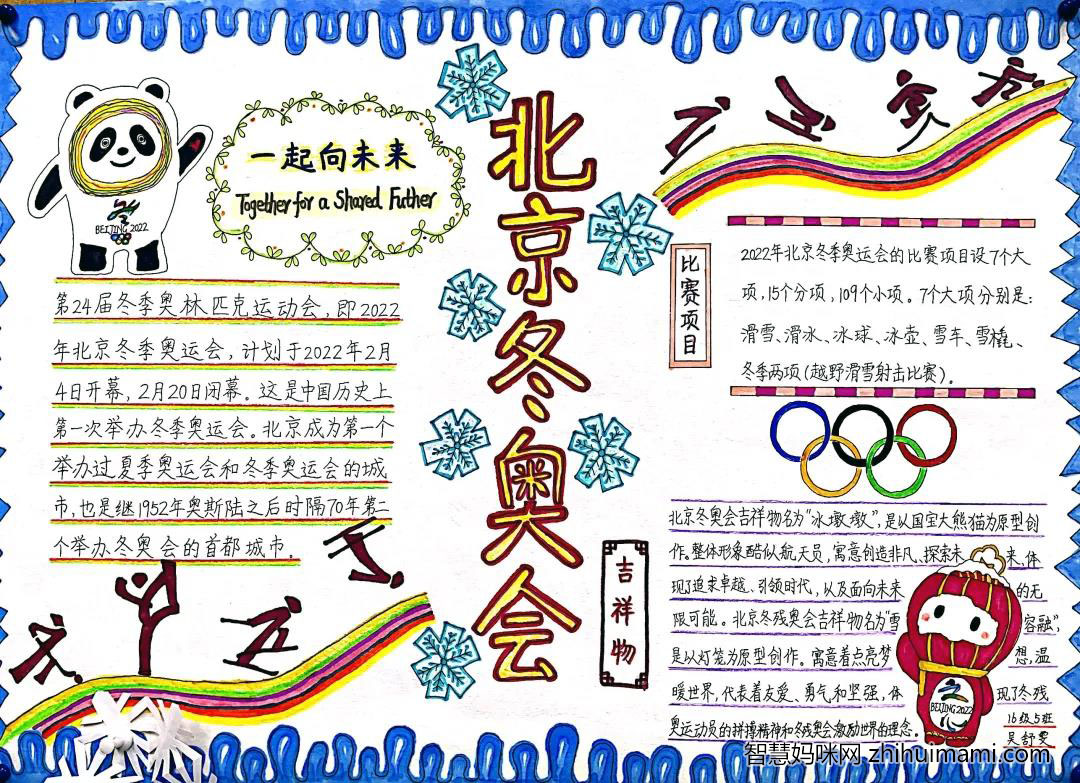 北京冬奥会
一起向未来
Together for a Shared Futher
BEIJING 2022
第24届冬季奥林匹克运动会，即2022
年北京冬季奥运会，计划于2022年2月
4日开幕，2月20日闭幕。这是中国历史上
第一次举办冬季奥运会。北京成为第一个
举办过夏季奥运会和冬季奥运会的城
市，也是继1952年奥斯陆之后时隔70年第二
个举办冬奥会的首都城市。
比赛项目
2022年北京冬季奥运会的比赛项目设7个大
项，15个分项，109个小项。7个大项分别是：
滑雪、滑冰、冰球、冰壶、雪车、雪橇、
冬季两项（越野滑雪射击比赛）。
吉祥物
北京冬奥会吉祥物名为“冰墩墩”，是从国宝大熊猫为原型创
作。整体形象酷似航天员，寓意创造非凡、探索未来，体
现了追求卓越、引领时代，以及面向未来的无
限可能。北京冬残奥会吉祥物名为“雪容融”，
是以灯笼为原型创作。寓意着点亮梦想，温
暖世界，代表着友爱、勇气和坚强，体现了冬残
奥运动员的拼搏精神和冬残奥会激励世界的理念。
BEIJING 2022
16级5班
吴舒雯
智慧妈咪网 zhihuimami.com